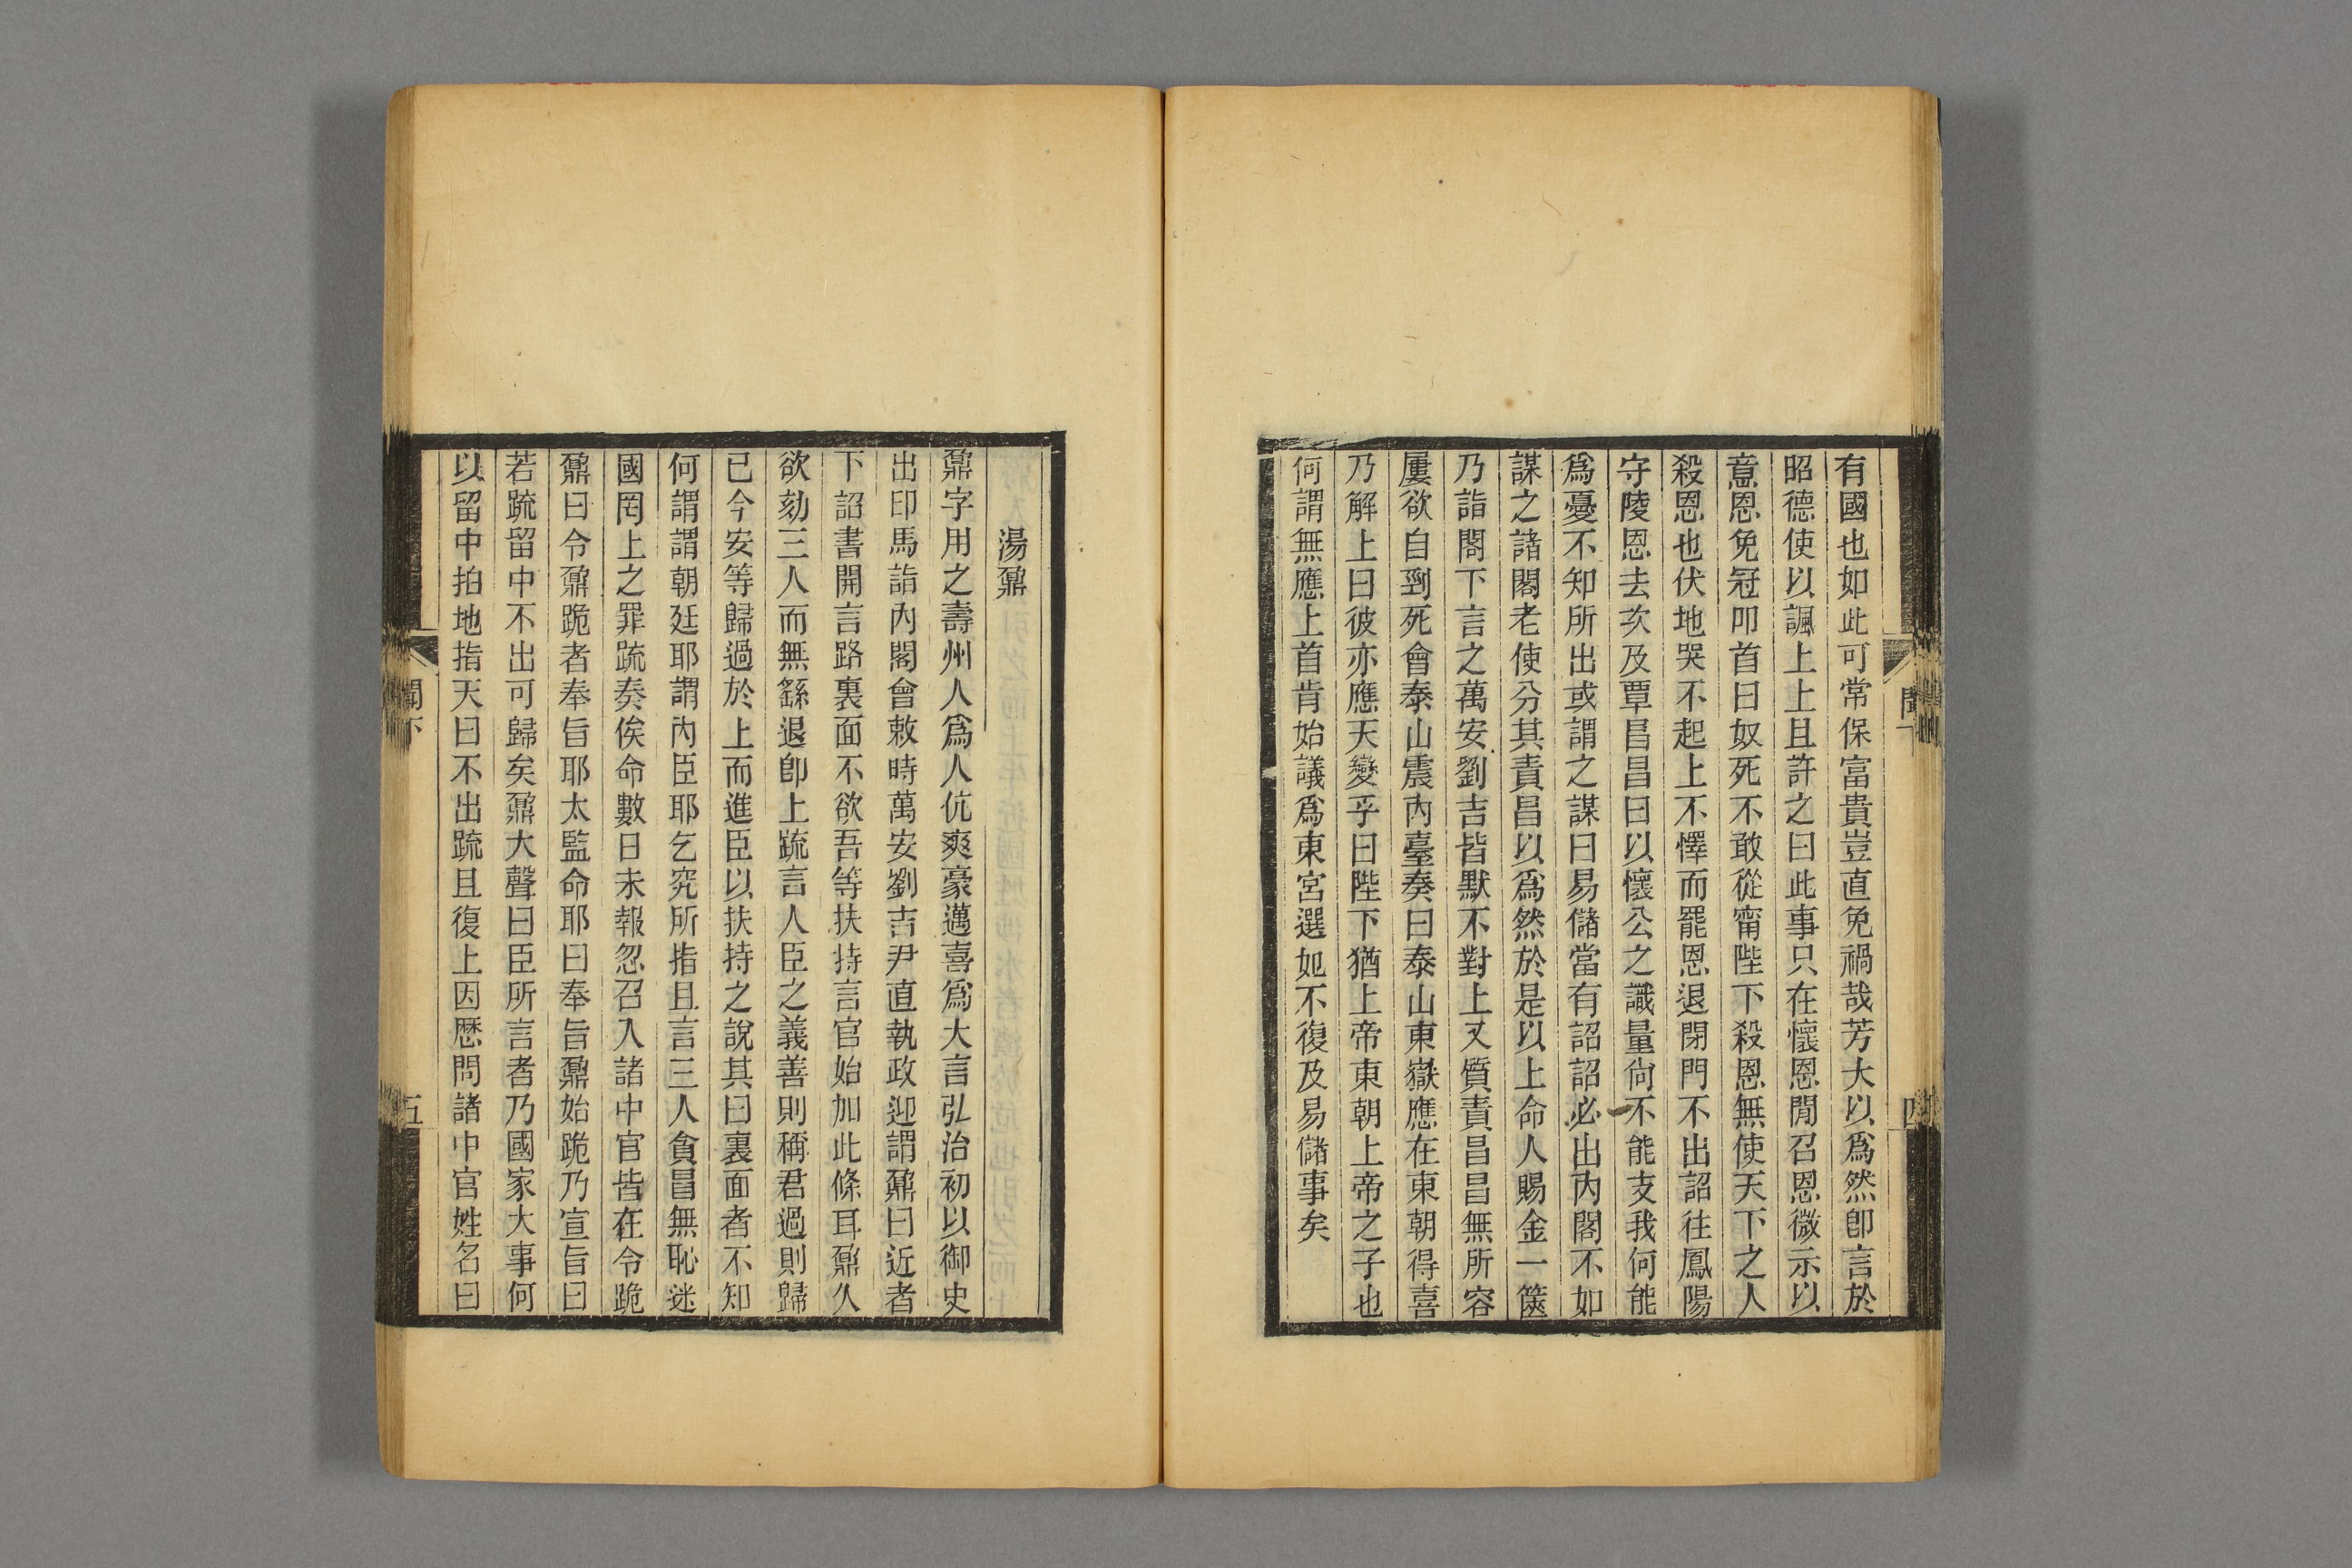 有國也如此可常保富貴豈直免禍哉芳大以爲然卽言於
昭德使以諷上上且許之曰此事只在懷恩閒召恩微示以
意恩免冠叩首曰奴死不敢從甯陛下殺恩無使天下之人
殺恩也伏地哭不起上不懌而罷恩退閉門不出詔往鳳陽
守陵恩去次及覃昌昌曰以懷公之識量尙不能支我何能
爲憂不知所出或謂之謀曰易儲當有詔詔必出內閣不如
謀之諸閣老使分其責昌以爲然於是以上命人賜金一篋
乃詣閣下言之萬安劉吉皆默不對上又質責昌昌無所容
屢欲自剄死會泰山震內臺奏曰泰山東嶽應在東朝得喜
乃解上曰彼亦應天變乎曰陛下猶上帝東朝上帝之子也
何謂無應上首肯始議爲東宮選妃不復及易儲事矣
湯鼐
鼐字用之壽州人爲人伉爽豪邁喜爲大言弘治初以御史
出印馬詣內閣會敕時萬安劉吉尹直執政迎謂鼐曰近者
下詔書開言路裏面不欲吾等扶持言官始加此條耳鼐久
欲劾三人而無繇退卽上疏言人臣之義善則稱君過則歸
已今安等歸過於上而進臣以扶持之說其曰裏面者不知
何謂謂朝廷耶謂內臣耶乞究所指且言三人貪冒無恥迷
國罔上之罪疏奏俟命數日未報忽召入諸中官皆在令跪
鼐曰令鼐跪者奉旨耶太監命耶曰奉旨鼐始跪乃宣旨曰
若疏留中不出可歸矣鼐大聲曰臣所言者乃國家大事何
以留中拍地指天曰不出疏且復上因歷問諸中官姓名曰
聞下
五